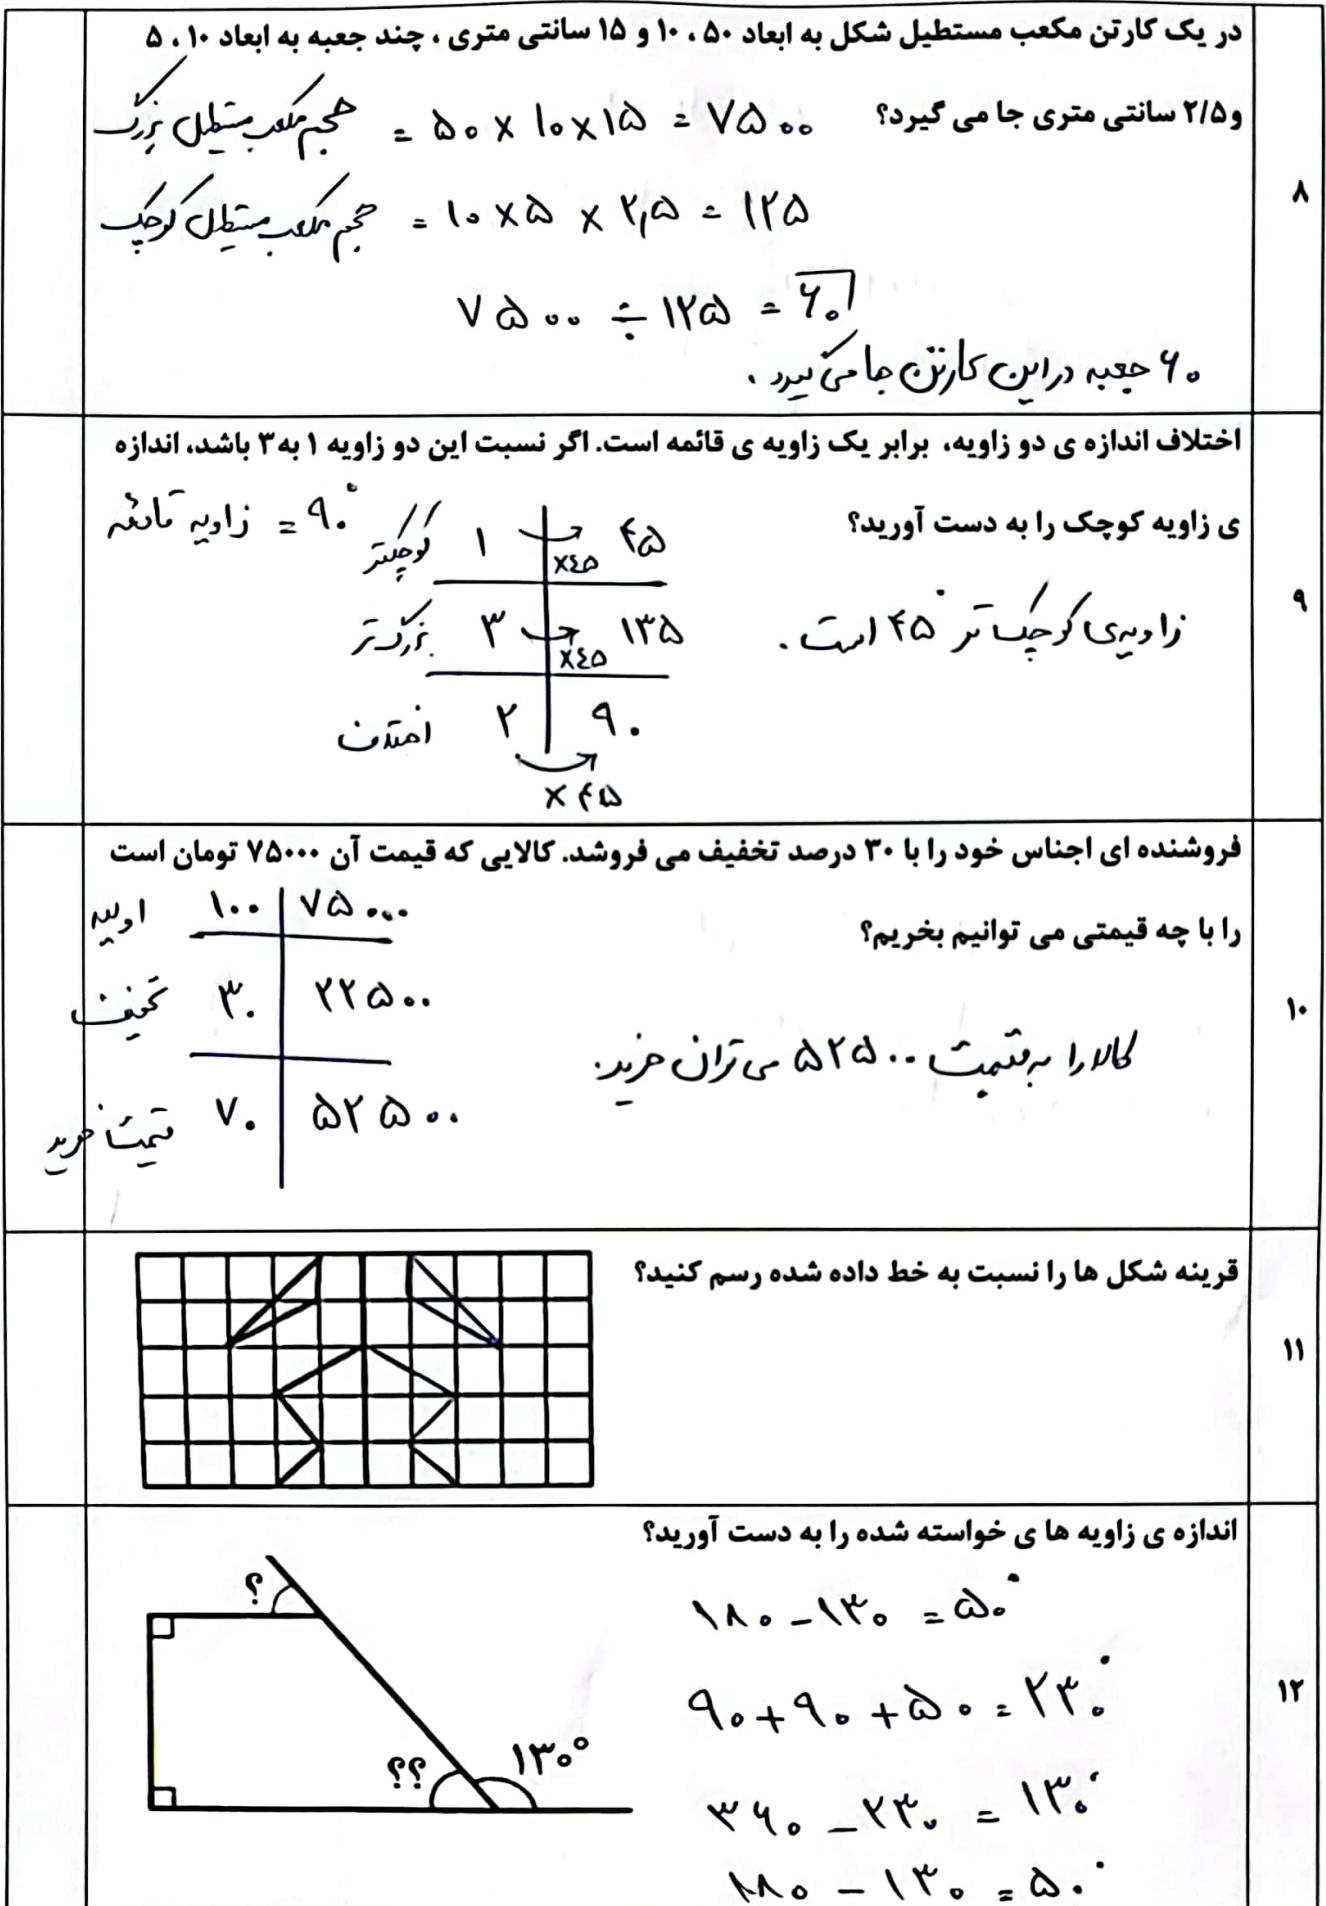 در یک کارتن مکعب مستطیل شکل به ابعاد ۵۰ ، ۱۰ و ۱۵ سانتی متری ، چند جعبه به ابعاد ۱۰ ، ۵
و۲/۵ سانتی متری جا می گیرد؟
حجم مکعب مستطیل بزرگ = ۵۰ × ۱۰ × ۱۵ = ۷۵۰۰
۸
حجم مکعب مستطیل کوچک = ۱۰ × ۵ × ۲,۵ = ۱۲۵
۷۵۰۰ ÷ ۱۲۵ = ۶۰
۶۰ جعبه در این کارتن جا می گیرد .
اختلاف اندازه ی دو زاویه، برابر یک زاویه ی قائمه است. اگر نسبت این دو زاویه ۱ به ۳ باشد، اندازه
ی زاویه کوچک را به دست آورید؟
زاویه قائمه = ۹۰°
کوچکتر ۱ ×٤۵ ۴۵
۹
زاویه‌ی کوچک تر ۴۵° است .
بزرگ تر ۳ ×٤۵ ۱۳۵
اختلاف ۲ ۹۰
× ۴۵
فروشنده ای اجناس خود را با ۳۰ درصد تخفیف می فروشد. کالایی که قیمت آن ۷۵۰۰۰ تومان است
را با چه قیمتی می توانیم بخریم؟
اولیه ۱۰۰ ۷۵۰۰۰
تخفیف ۳۰ ۲۲۵۰۰
۱۰
کالا را به قیمت ۵۲۵۰۰ می توان خرید.
قیمت خرید ۷۰ ۵۲۵۰۰
قرینه شکل ها را نسبت به خط داده شده رسم کنید؟
۱۱
اندازه ی زاویه ها ی خواسته شده را به دست آورید؟
؟
۱۸۰ − ۱۳۰ = ۵۰°
۹۰ + ۹۰ + ۵۰ = ۲۳۰°
۱۲
؟؟
۱۳۰°
۳۶۰ − ۲۳۰ = ۱۳۰°
۱۸۰ − ۱۳۰ = ۵۰°